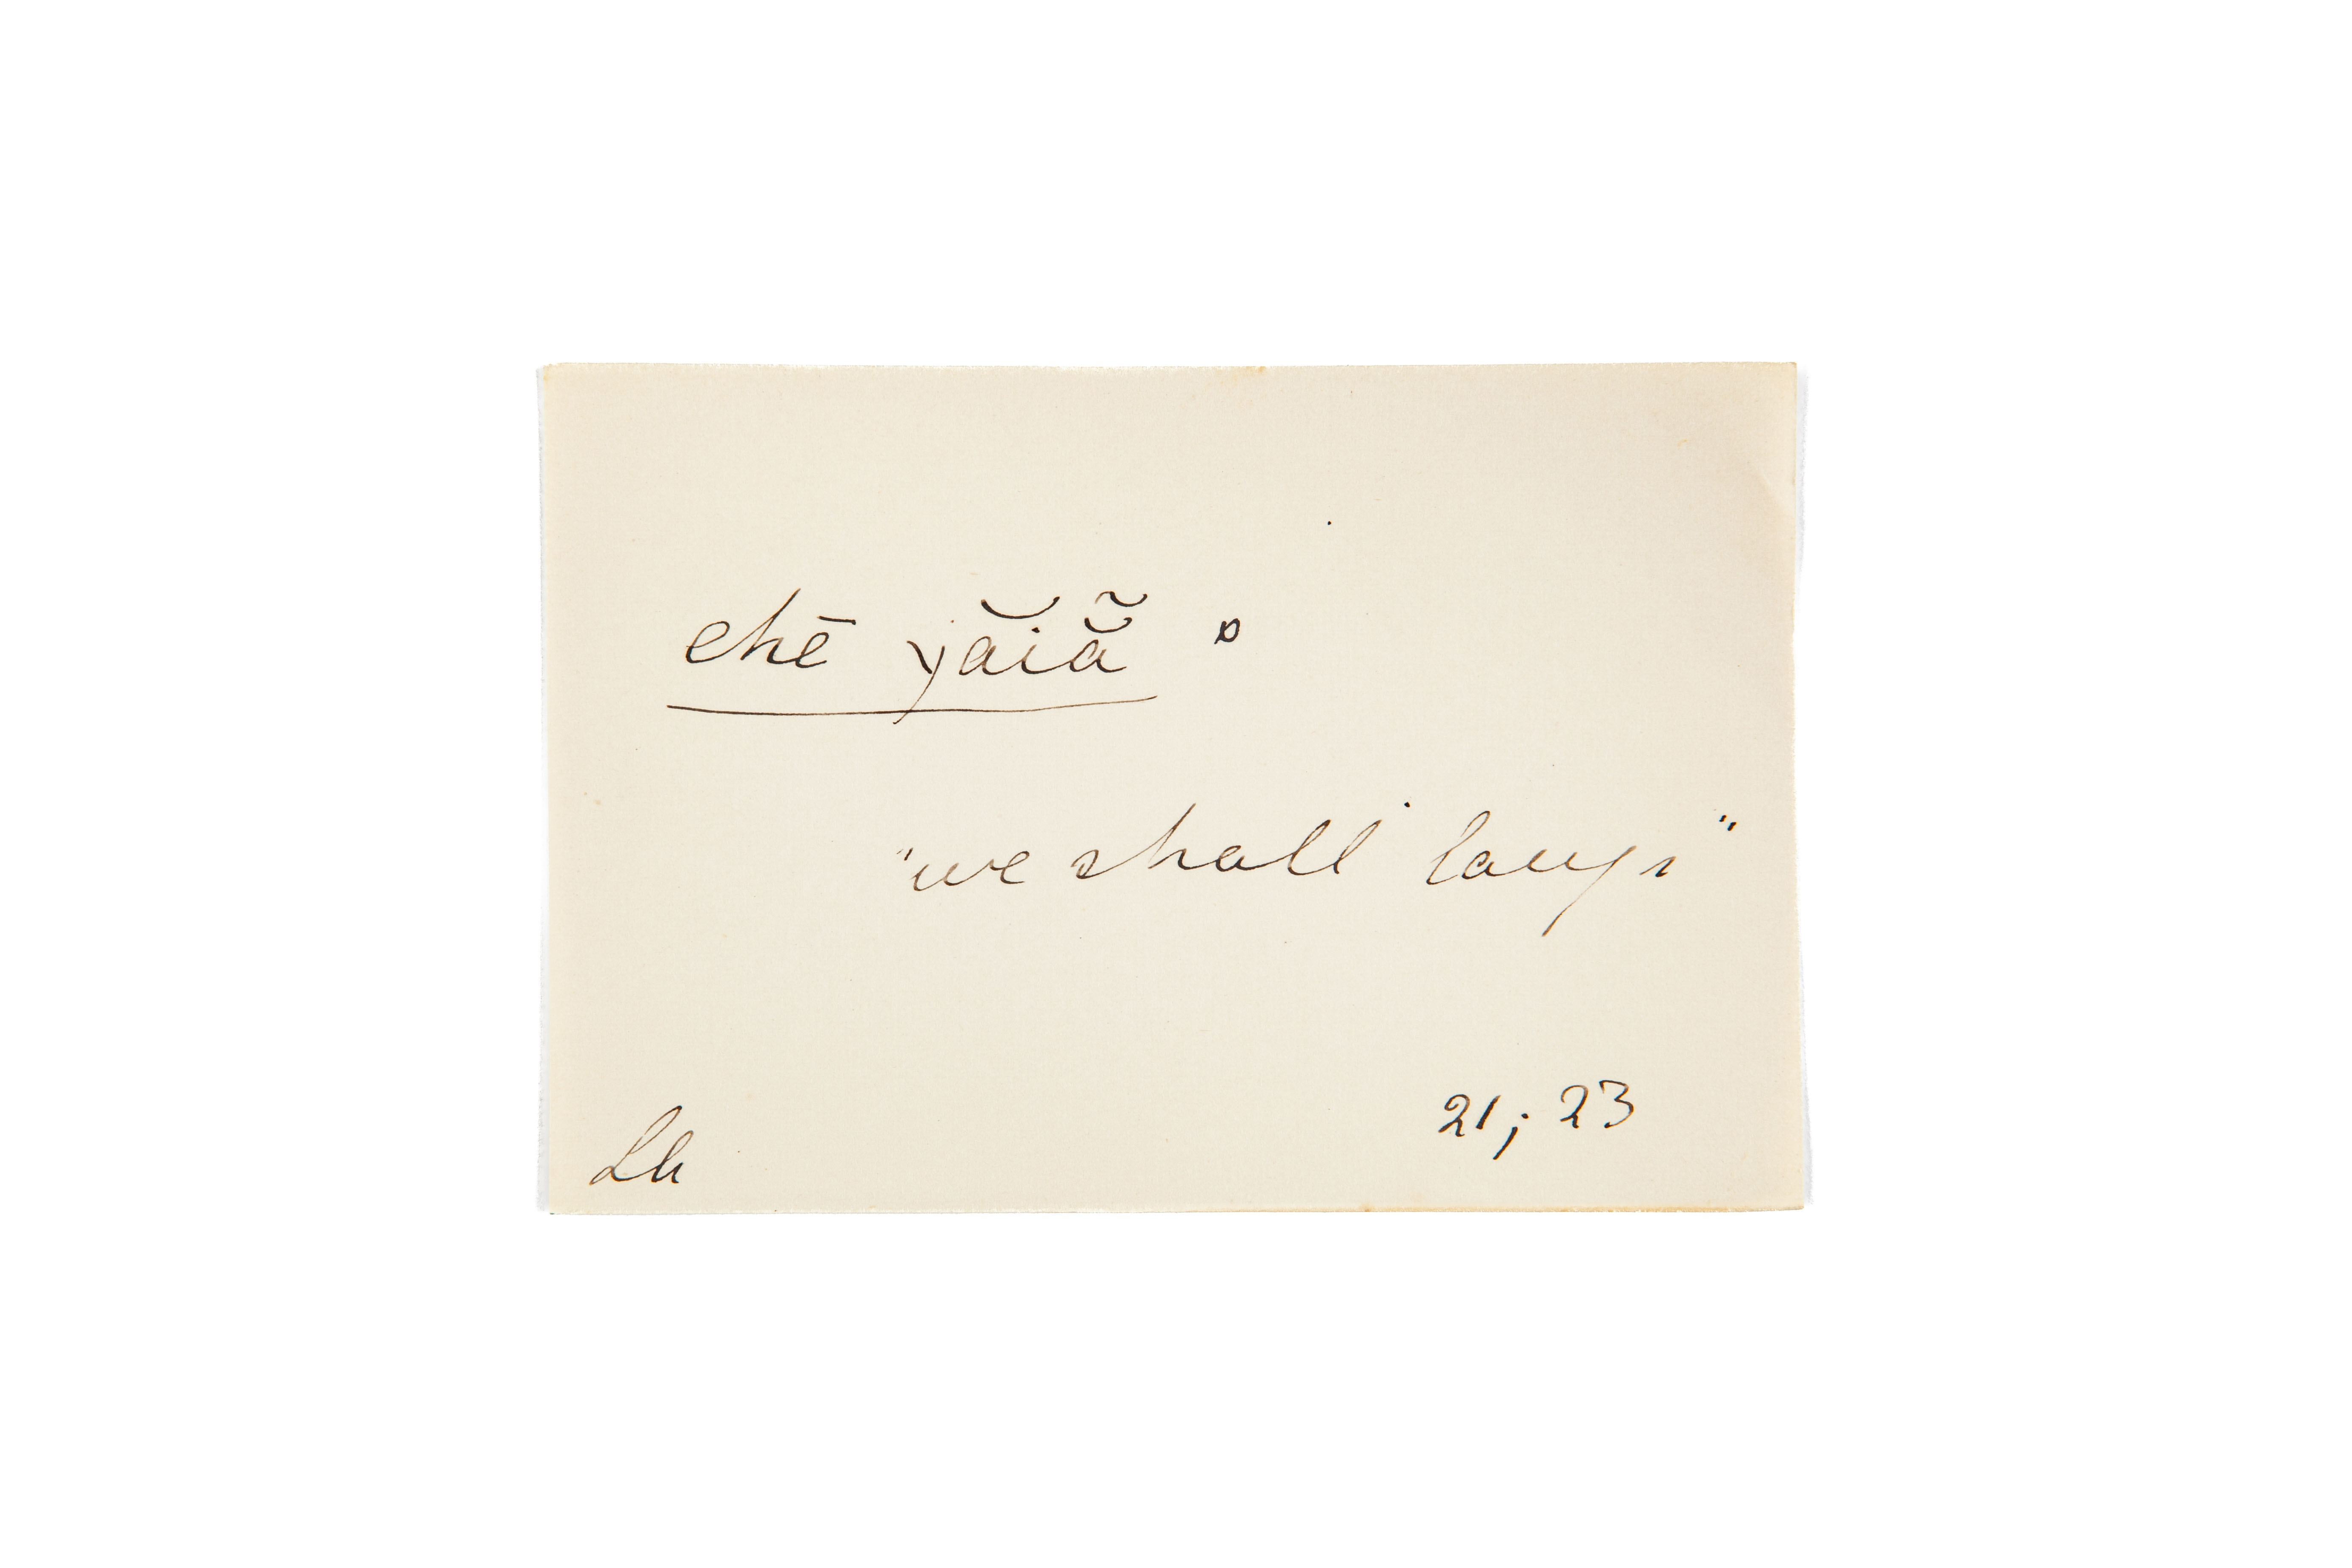 ehē yăiẵ
"we shall laugh"
21; 23
Lh